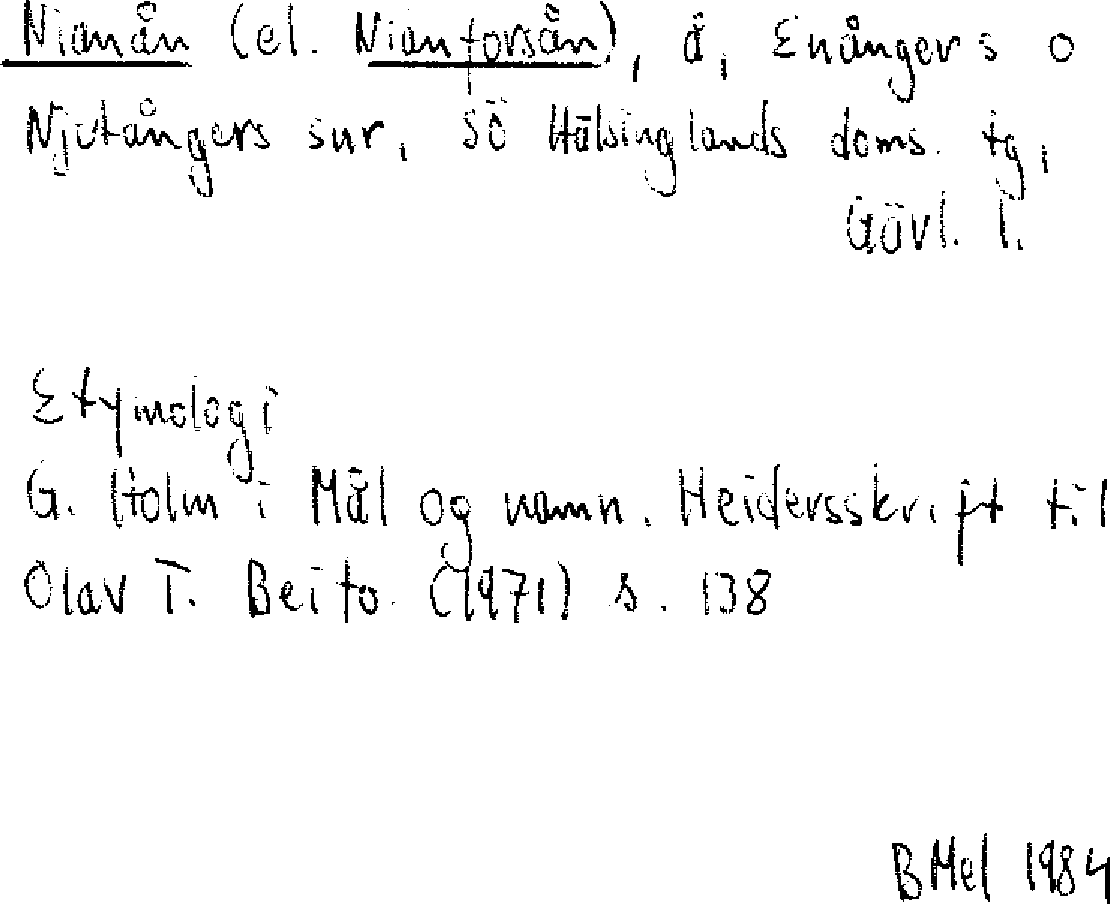 Nianån (el. Nianforsån), å, Enångers o
Njutångers snr, Sö Hälsinglands doms. tg,
Gävl. l.
Etymologi
G. Holm i Mål og namn. Heidersskrift til
Olav T. Beito. (1971) s. 138
BMel 1984